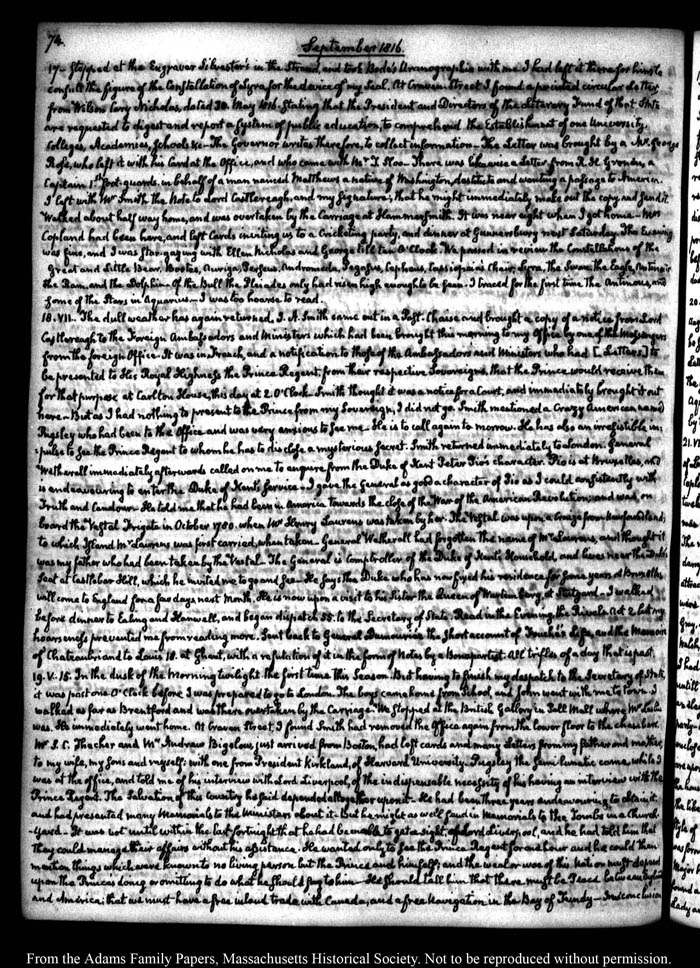 74.
September 1816.
17— Stopped at the Engraver Silvester's in the Strand, and took Bode's Uranographia with me I had left it there for him to
consult the figure of the Constellation of Lyra for the device of my Seal. At Craven Street I found a printed circular Letter
from Wilson Cary Nicholas, dated 30. May 1816. stating that the President and Directors of the Literary Fund of that State
are requested to digest and report a System of public education, to comprehend the Establishment of one University,
Colleges, Academies, Schools &c— The Governor writes therefore, to collect information— The Letter was brought by a Mr George
Rose, who left it with his Card at the Office, and who came with Mr T. There was likewise a Letter from R. H. Gronow, a
Captain 1st foot-guards, in behalf of a man named Matthews a native of Washington, destitute and wanting a passage to America
I left with Mr Smith, the Note to Lord Castlereagh, and my Signature; that he might immediately make out the copy and send it.
Walked about half way home, and was overtaken by the Carriage at Hammersmith. It was near eight when I got home— Mrs
Copland had been here, and left Cards inviting us to a Cricketing party, and dinner at Gunnersbury next Saturday. The Evening
was fine, and I was Star-gazing with Ellen Nicholas and George till ten O'Clock. We passed in review the Constellations of the
Great and Little Bear, Bootes, Auriga, Perseus, Andromeda, Pegasus, Cepheus, Cassiopeia's Chair, Lyra, the Swan, the Eagle, Antinous
the Ram, and the Dolphin. Of the Bull the Pleiades only had risen high enough to be seen. I traced for the first time the Antinous, and
some of the Stars in Aquarius— I was too hoarse to read.
18. VII. The dull weather has again returned. J. A. Smith came out in a Post-Chaise and brought a copy of a notice from Lord
Castlereagh to the Foreign Ambassadors and Ministers which had been brought this morning to my Office by one of the Messengers
from the foreign Office. It was in French, and a notification to those of the Ambassadors and Ministers who had [Letters] to
be presented to His Royal Highness the Prince Regent, from their respective Sovereigns, that the Prince would receive them
for that purpose at Carlton House, this day at 2. O'Clock. Smith thought it was a notice for a Court, and immediately brought it out
here— But as I had nothing to present to the Prince from my Sovereign, I did not go. Smith mentioned a Crazy American named
Pugsley who had been to the Office and was very anxious to see me. He is to call again to morrow. He has also an irresistible im:
:pulse to see the Prince Regent to whom he has to disclose a mysterious Secret. Smith returned immediately to London. General
Wetherall immediately afterwards called on me to enquire from the Duke of Kent Peter Pio's character. Pio is at Bruxelles, and
is endeavouring to enter the Duke of Kent's Service— I gave the General as good a character of Pio as I could consistently with
Truth and Candour. He told me that he had been in America towards the close of the War of the American Revolution; and was on
board the Vestal Frigate in October 1780. when Mr Henry Laurens was taken by her. The Vestal was upon a Cruize from Newfoundland;
to which Island Mr Laurens was first carried, when taken— General Wetherall had forgotten the name of Mr Laurens, and thought it
was my father who had been taken by the Vestal. The General is Comptroller of the Duke of Kent's Household, and lives near the Duke's
Seat at Castlebar Hill, which he invited me to go and see— He says the Duke who has now fixed his residence for some years at Bruxelles
will come to England for a few days next Month. He is now upon a visit to his Sister the Queen of Wurtemberg, at Stutgard— I walked
before dinner to Ealing and Hanwell, and began dispatch 55. to the Secretary of State. Read in the Evening the Rivals Act 2. but my
hoarseness prevented me from reading more. Sent back to General Dumouriez the short account of Life, and the Memoir
of Chateaubriand to Louis 18. at Ghent, with a refutation of it in the form of Notes by a Bonapartist. All trifles of a day that is past.
19. V. 15. In the dusk of the morning twilight the first time this Season. But having to finish my despatch to the Secretary of State,
it was past one O'Clock before I was prepared to go to London. The boys came home from School, and John went with me to town. I
walked as far as Brentford and was there overtaken by the Carriage. We stopped at the British Gallery in Pall Mall where Mr Leslie
was. He immediately went home. At Craven Street, I found Smith had removed the Office again from the lower floor to the chambers.
Mr S. C. Thacher and Mr Andrew Bigelow, just arrived from Boston, had left cards and many Letters from my father and mother,
to my wife, my Sons and myself; with one from President Kirkland, of Harvard University. Pugsley the Semi-lunatic came, while I
was at the office, and told me of his interview with Lord Liverpool, of the indispensable necessity of his having an interview with the
Prince Regent. The Salvation of this Country he said depended altogether upon it— He had been three years endeavouring to obtain it,
and had presented many Memorials to the Ministers about it. But he might as well send in Memorials to the Tombs in a Church-
-yard— It was not until within the last fortnight that he had been able to get a sight of Lord Liverpool, and he had told him that
they could manage their affairs without his assistance. He wanted only to see the Prince Regent for one hour and he could then
mention things which were known to no living person but the Prince and himself; and the weal or woe of this Nation must depend
upon the Prince's doing or omitting to do what he should say to him— He should tell him that there must be Peace between England
and America; that we must have a free inland trade with Canada; and a free Navigation in the Bay of Fundy— In conclusion
From the Adams Family Papers, Massachusetts Historical Society. Not to be reproduced without permission.